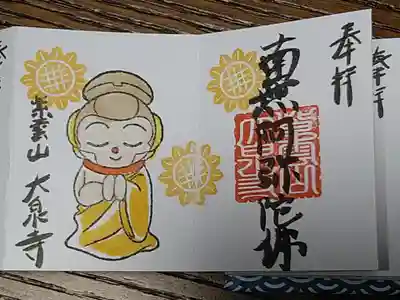 奉拝
南無阿弥陀佛
紫雲山 大泉寺
奉拝